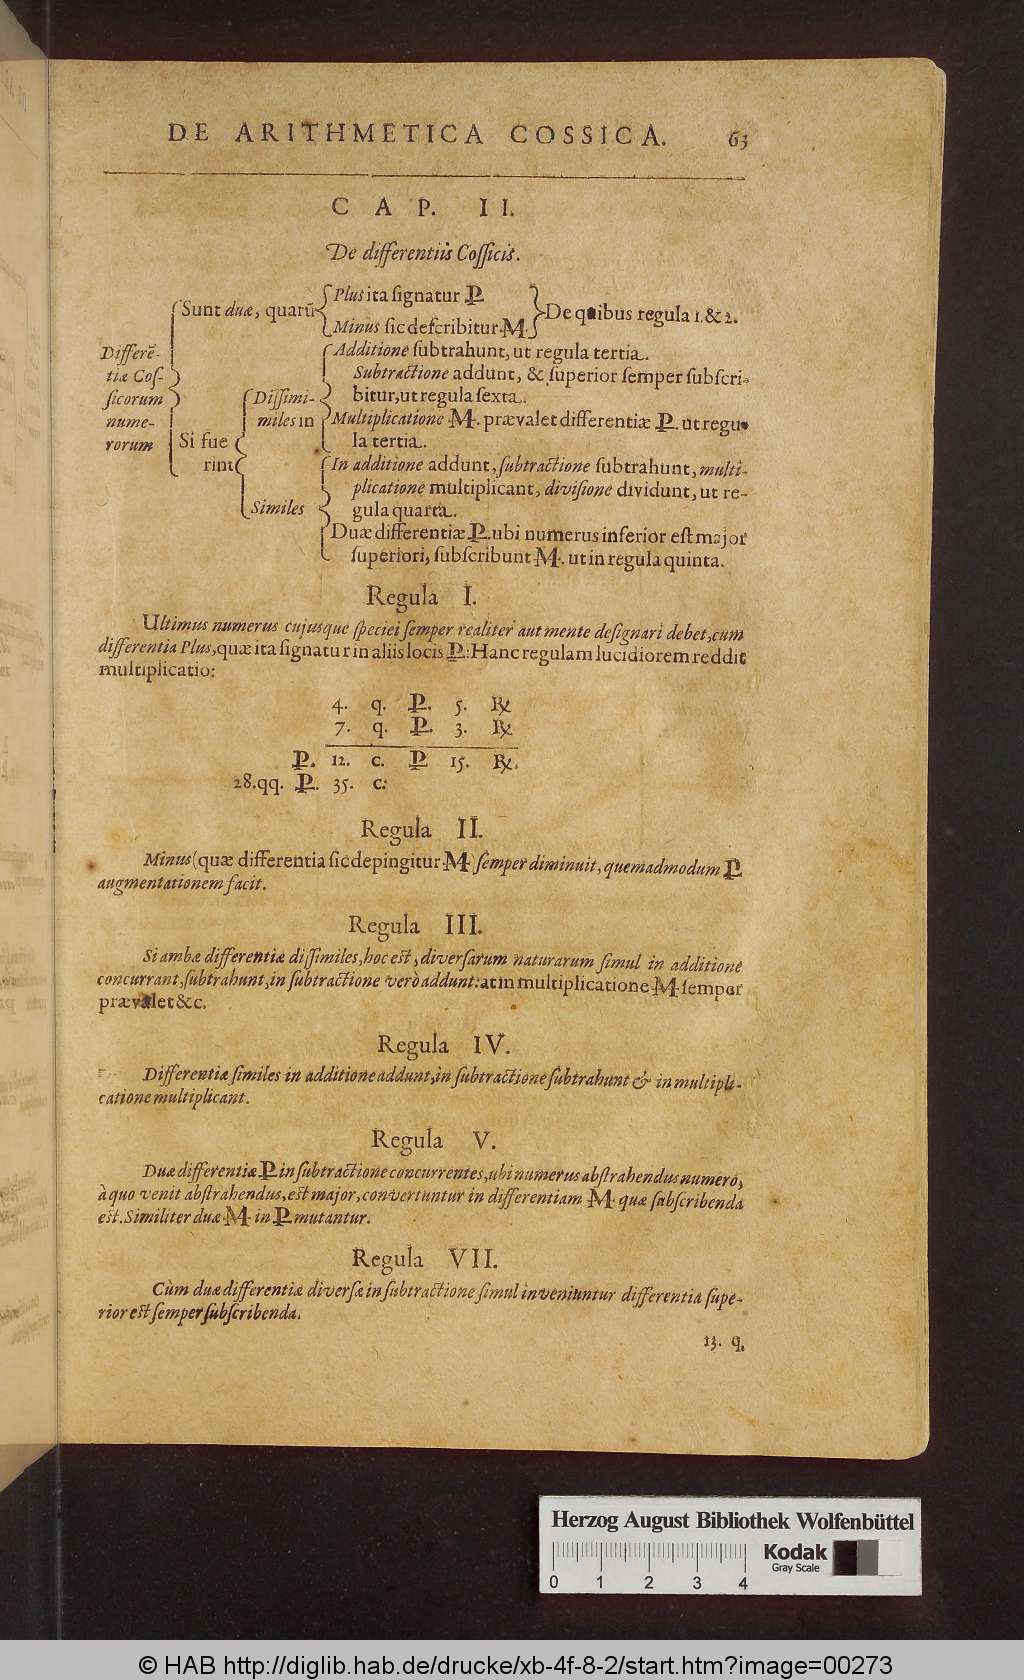 DE ARITHMETICA COSSICA. 63
CAP. II.
De differentiis Cossicis.
Sunt duæ, quarũ
Plus ita signatur P
Minus sic describitur M.
De quibus regula 1. & 2.
Differẽ-
tiæ Cos-
sicorum
nume-
rorum
Si fue
rint
Dissimi-
miles in
Additione subtrahunt, ut regula tertia.
Subtractione addunt, & superior semper subscri-
bitur, ut regula sexta.
Multiplicatione M. prævalet differentiæ P. ut regu-
la tertia.
Similes
In additione addunt, subtractione subtrahunt, multi-
plicatione multiplicant, divisione dividunt, ut re-
gula quarta.
Duæ differentiæ P. ubi numerus inferior est major
superiori, subscribunt M. ut in regula quinta.
Regula I.
Ultimus numerus cujusque speciei semper realiter aut mente designari debet, cum
differentia Plus, quæ ita signatur in aliis locis P: Hanc regulam lucidiorem reddit
multiplicatio:
4. q. P. 5. ℞
7. q. P. 3. ℞
P. 12. c. P 15. ℞.
28. qq. P. 35. c:
Regula II.
Minus (quæ differentia sic depingitur M semper diminuit, quemadmodum P
augmentationem facit.
Regula III.
Si ambæ differentiæ dissimiles, hoc est, diversarum naturarum simul in additione
concurrant, subtrahunt, in subtractione verò addunt: at in multiplicatione M semper
prævalet &c.
Regula IV.
Differentiæ similes in additione addunt, in subtractione subtrahunt & in multipli-
catione multiplicant.
Regula V.
Duæ differentiæ P in subtractione concurrentes, ubi numerus abstrahendus numero,
à quo venit abstrahendus, est major, convertuntur in differentiam M quæ subscribenda
est. Similiter duæ M in P mutantur.
Regula VII.
Cùm duæ differentiæ diversæ in subtractione simul inveniuntur differentia supe-
rior est semper subscribenda.
13. q.
Herzog August Bibliothek Wolfenbüttel
Kodak
Gray Scale
0 1 2 3 4
© HAB http://diglib.hab.de/drucke/xb-4f-8-2/start.htm?image=00273